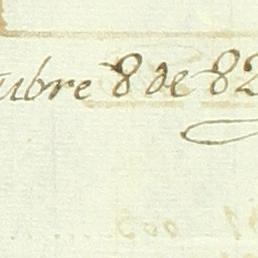 ubre 8 de 82